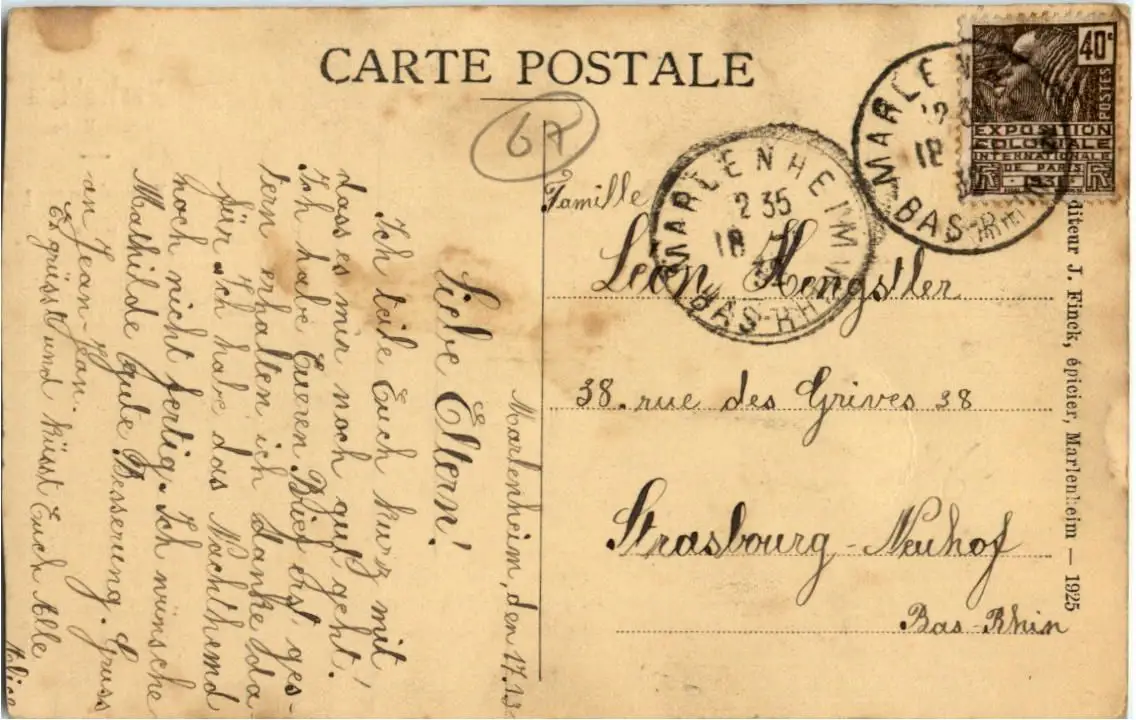 CARTE POSTALE
67
40c
POSTES
EXPOSITION
COLONIALE
INTERNATIONALE
DE PARIS
MARLENHEIM
2 35
18
BAS-RHIN
MARLENHEIM
18
BAS-RHIN
Famille
Léon Hengstler
38. rue des Grives 38
Strasbourg-Neuhof
Bas-Rhin
diteur J. Finck, épicier, Marlenheim — 1925
Marlenheim, den 17.
Liebe Eltern!
Ich teile Euch kurz mit,
dass es mir noch gut geht.
Ich habe Eueren Brief erst ges-
tern erhalten ich danke da
für. Ich habe das Nachthemd
noch nicht fertig. Ich wünsche
Mathilde gute Besserung. Gruss
an Jean-Jean.
Es grüsst und küsst Euch Alle
Alice